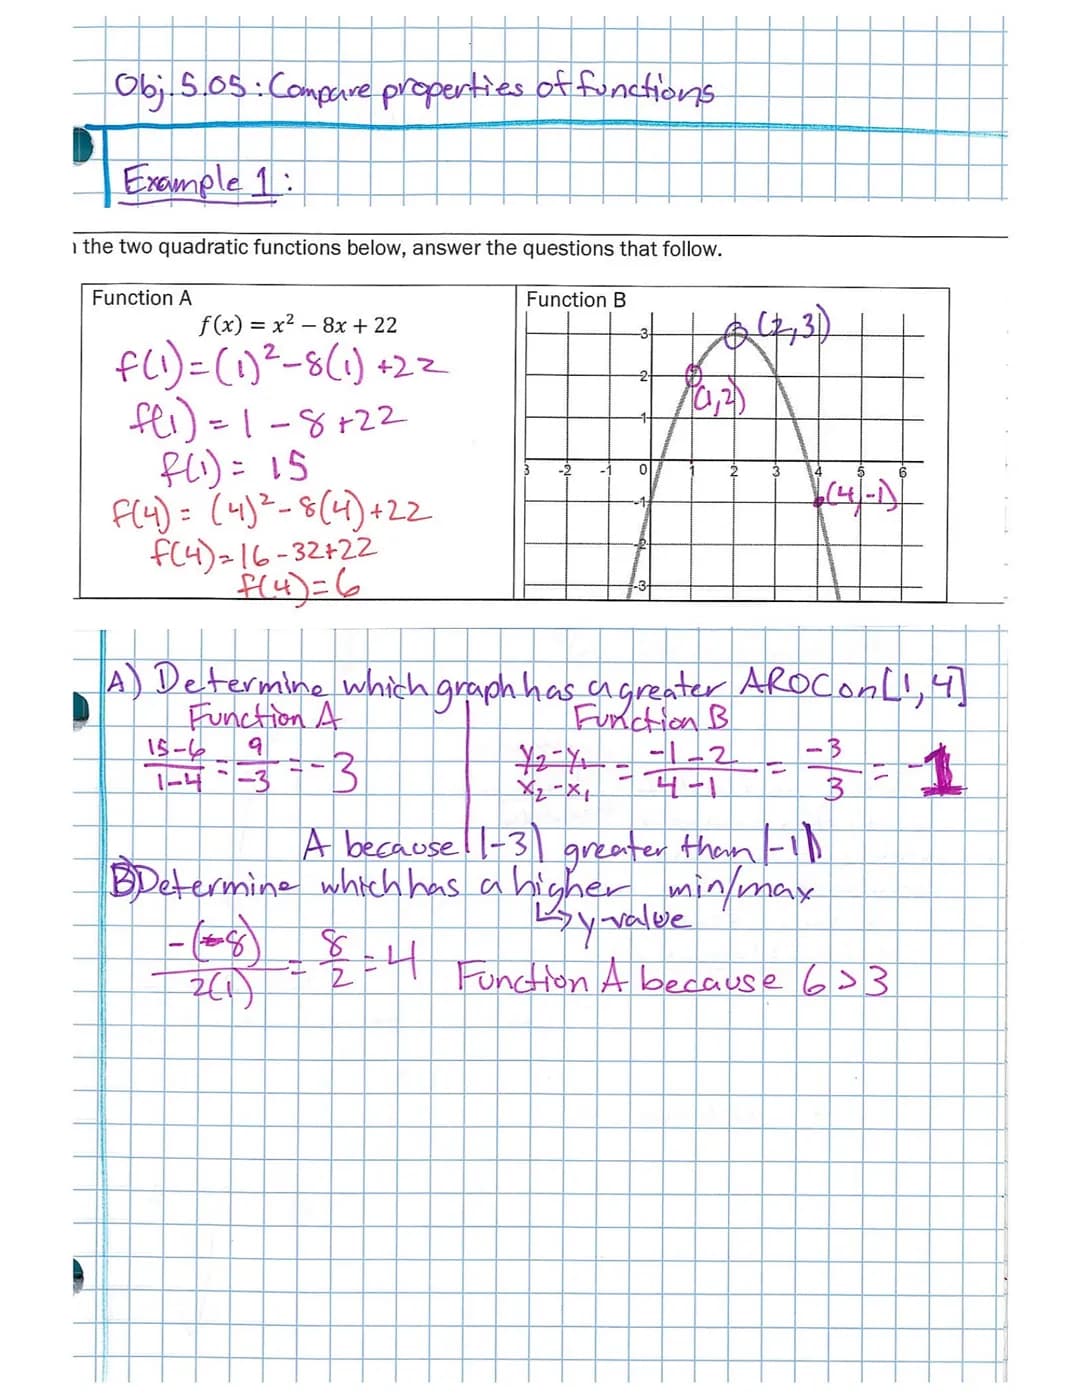 Obj. 5.05: Compare properties of functions
Example 1:
the two quadratic functions below, answer the questions that follow.
Function A
f(x) = x² – 8x + 22
f(1)=(1)²-8(1)+22
f(1)=1-8+22
f(1)=15
f(4)=(4)²-8(4)+22
f(4)=16-32+22
f(4)=6
Function B
3
(2,3)
2
(1,2)
1
3 -2 -1 0 1 2 3 4 5 6
(4,-1)
-1
-2
-3
A) Determine which graph has a greater AROC on [1,4]
Function A
15-6/1-4 = 9/-3 = -3
Function B
y₂-y₁/x₂-x₁ = -1-2/4-1 = -3/3 = -1
A because |-3| greater than |-1|
B) Determine which has a higher min/max
↳ y-value
-(-8)/2(1) = 8/2 = 4
Function A because 6>3